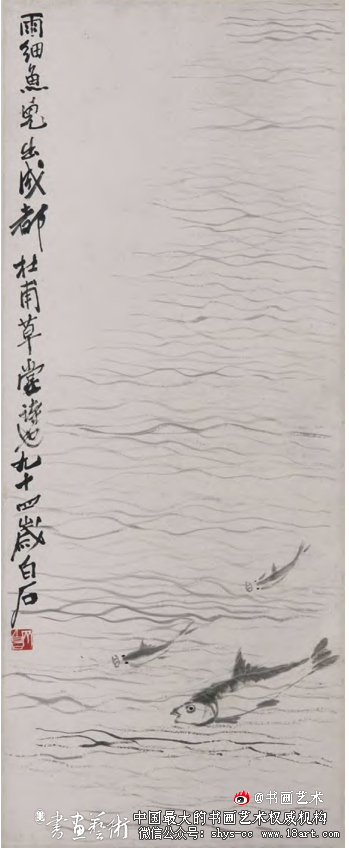 雨细鱼儿出成都杜甫草堂诗也九十四岁白石
@书画艺术
書畫藝術
中国最大的书画艺术权威机构
微信公众号：shys-cc www.18art.com